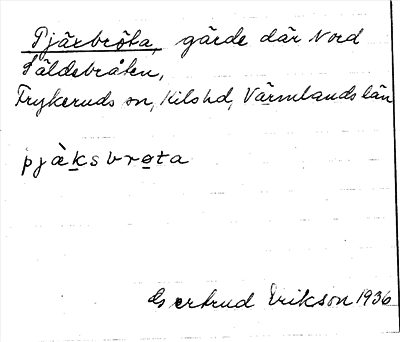 Pjäxbröta, gärde där Nord
Säldebråten,
Frykeruds sn, Kils hd, Värmlands län
pjäksbrøta
Gertrud Erikson 1936